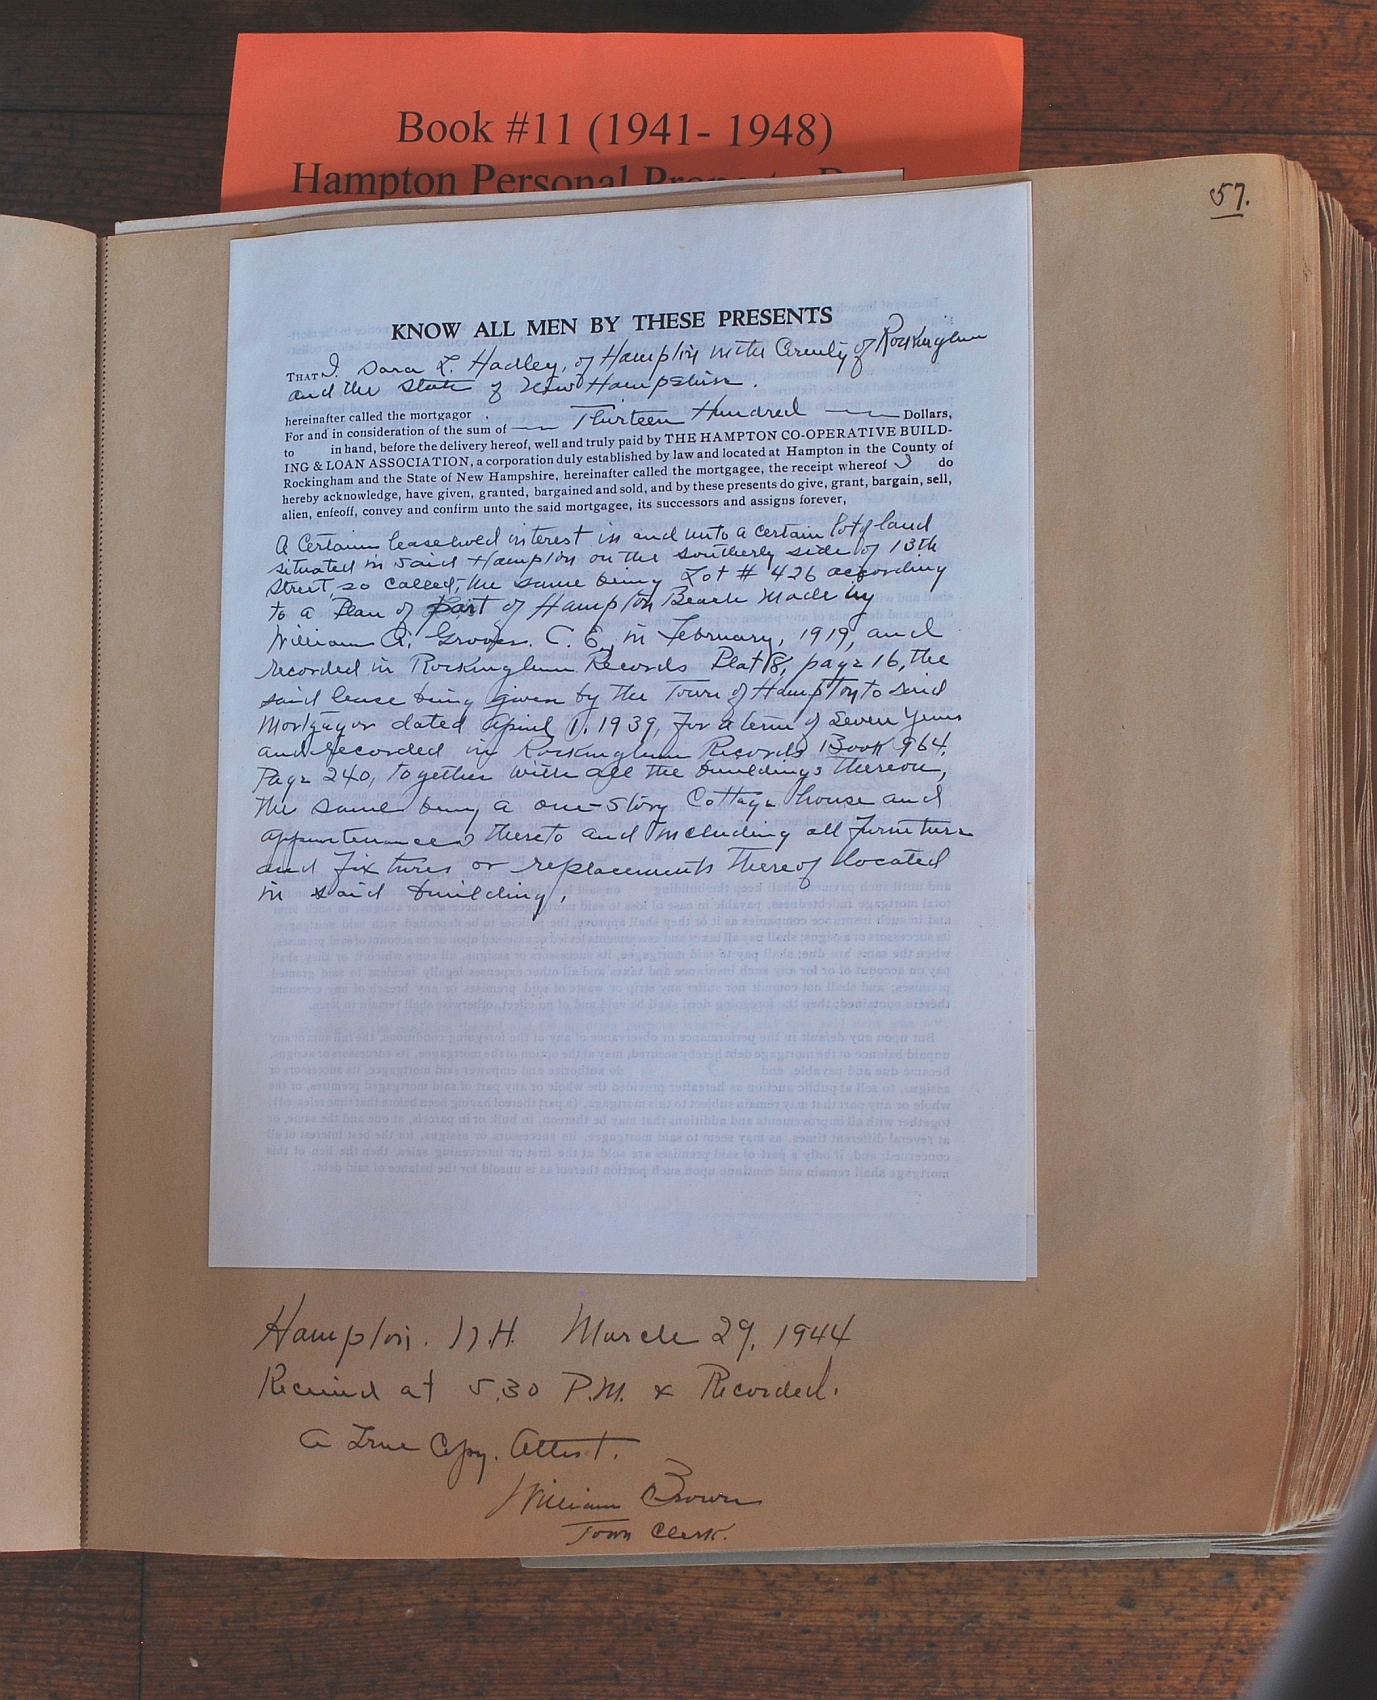 Book #11 (1941- 1948)
Hampton Personal Property
57.
KNOW ALL MEN BY THESE PRESENTS
THAT I, Sara L. Hadley, of Hampton in the County of Rockingham
and the State of New Hampshire.
hereinafter called the mortgagor
For and in consideration of the sum of Thirteen Hundred Dollars,
to in hand, before the delivery hereof, well and truly paid by THE HAMPTON CO-OPERATIVE BUILD-
ING & LOAN ASSOCIATION, a corporation duly established by law and located at Hampton in the County of
Rockingham and the State of New Hampshire, hereinafter called the mortgagee, the receipt whereof I do
hereby acknowledge, have given, granted, bargained and sold, and by these presents do give, grant, bargain, sell,
alien, enfeoff, convey and confirm unto the said mortgagee, its successors and assigns forever,
A Certain leasehold interest in and unto a certain lot of land
situated in said Hampton on the southerly side of 13th
Street, so called, the same being Lot # 426 according
to a Plan of part of Hampton Beach made by
William A. Grover. C. E. in February, 1919, and
recorded in Rockingham Records Plat 8, page 16, the
said lease being given by the Town of Hampton to said
Mortgagor dated April 1, 1939, for a term of Seven Years
and recorded in Rockingham Records Book 964,
Page 240, together with all the buildings thereon,
the same being a one-story Cottage house and
appurtenances thereto and including all furniture
and fixtures or replacements thereof located
in said building.
Hampton. N.H. March 29, 1944
Received at 5.30 P.M. & Recorded.
A True Copy. Attest.
William Brown
Town Clerk.